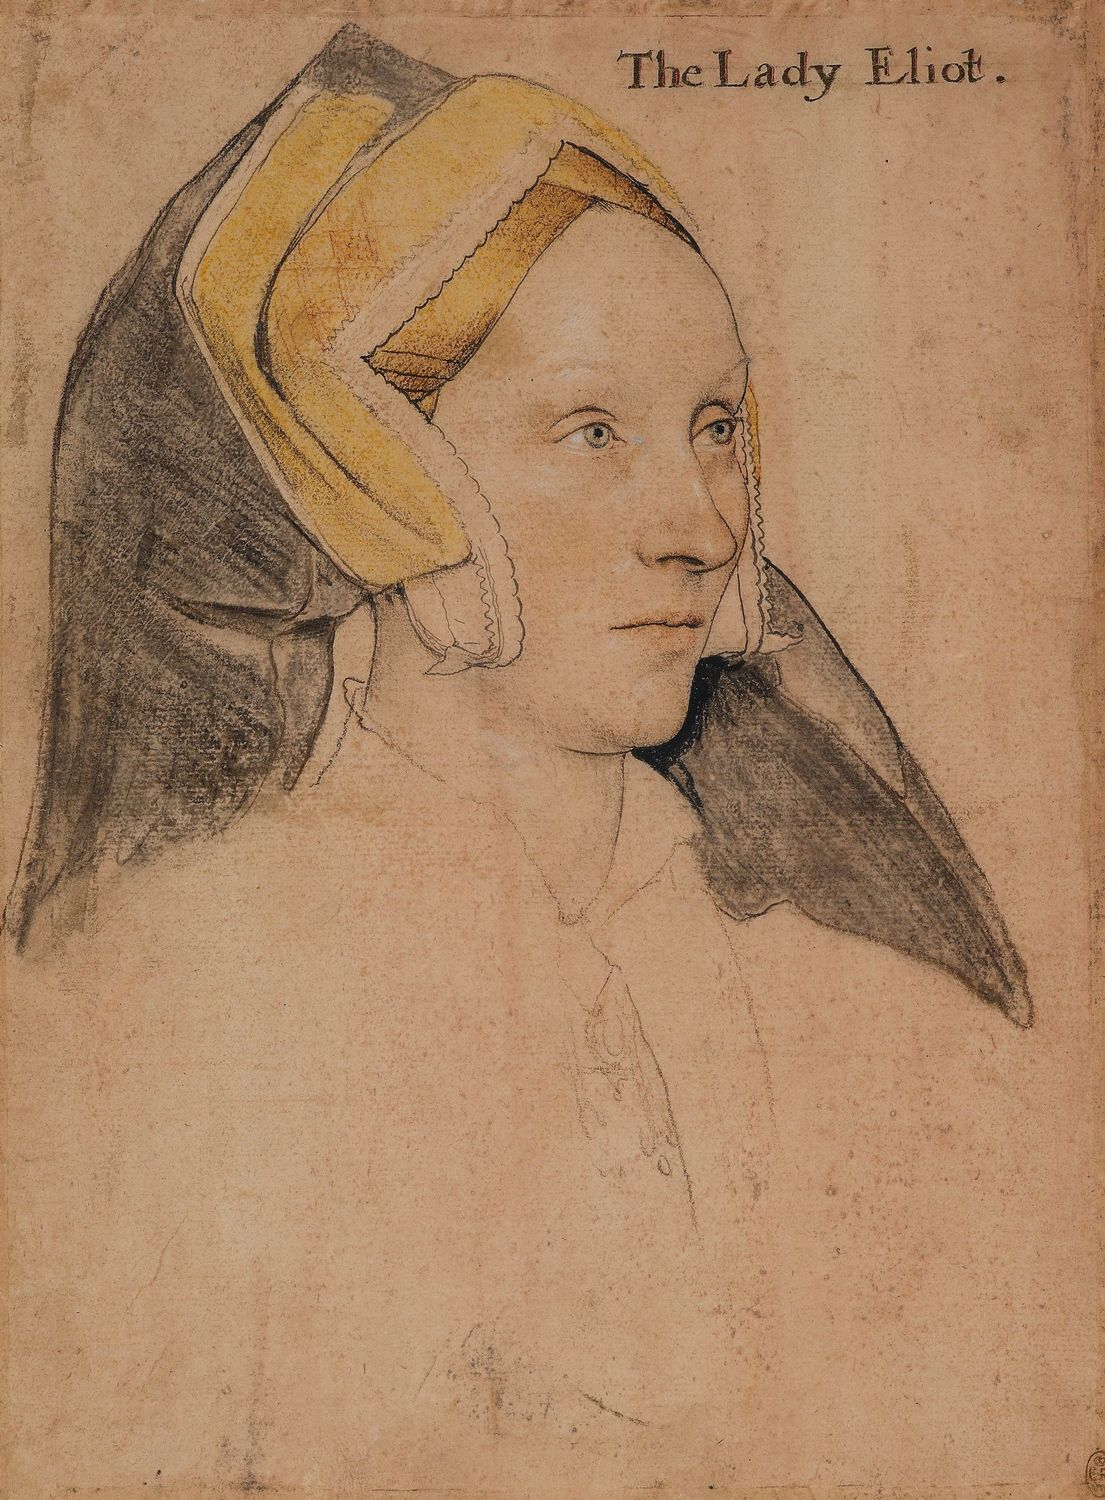 The Lady Eliot.